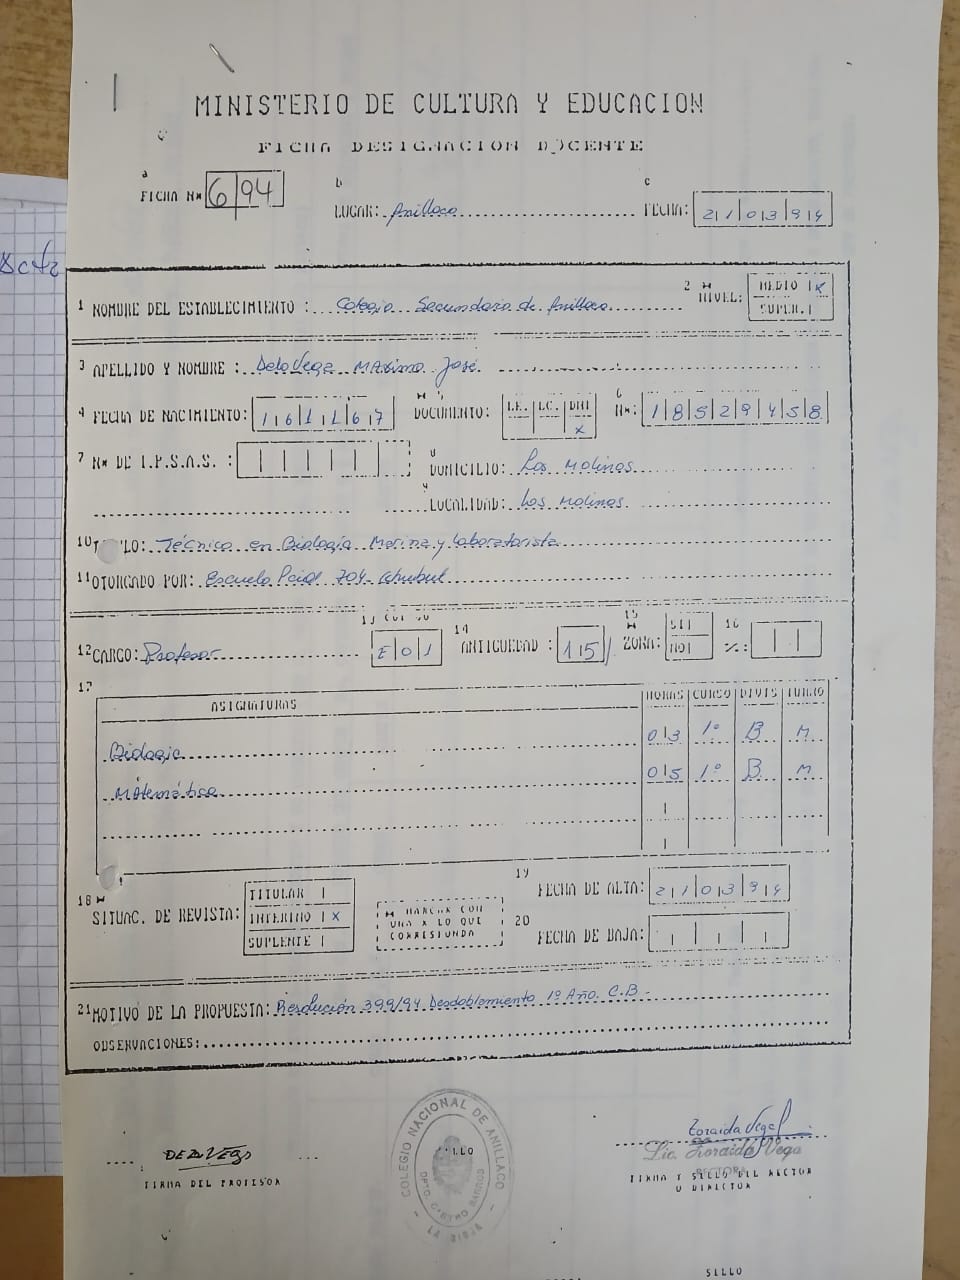 MINISTERIO DE CULTURA Y EDUCACION
FICHA DESIGNACION DOCENTE
a
FICHA Nº 6/94
b
LUGAR: Anillaco
c
FECHA: 21 03 94
1 NOMBRE DEL ESTABLECIMIENTO : Colegio Secundario de Anillaco
2 NIVEL: MEDIO X
SUPER.
3 APELLIDO Y NOMBRE : De la Vega Maximo José.
4 FECHA DE NACIMIENTO: 16 11 67
5 DOCUMENTO: L.E. L.C. DNI X
6 Nº: 18529458
7 Nº DE I.P.S.A.S. :
8 DOMICILIO: Los Molinos
9 LOCALIDAD: Los Molinos
10 TITULO: Técnico en Biología Marina y laboratorista
11 OTORGADO POR: Escuela Pcial 704 - Chubut
12 CARGO: Profesor
13 E01
14 ANTIGUEDAD : 15/
15 ZONA: SI
NO
16 %:
17
ASIGNATURAS HORAS CURSO DIVIS TURNO
Biología 03 1º B M
Matemática 05 1º B M
18 SITUAC. DE REVISTA: TITULAR
INTERINO X
SUPLENTE
MARCAR CON
UNA X LO QUE
CORRESPONDA
19 FECHA DE ALTA: 21 03 94
20 FECHA DE BAJA:
21 MOTIVO DE LA PROPUESTA: Resolución 399/94 Desdoblamiento 1º Año C.B.-
OBSERVACIONES:
COLEGIO NACIONAL DE ANILLACO
DPTO. CASTRO BARROS
- LA RIOJA -
DE LA VEGA
FIRMA DEL PROFESOR
Zoraida Vega
Lic. Zoraida Vega
RECTORA
FIRMA Y SELLO DEL RECTOR
O DIRECTOR
SELLO